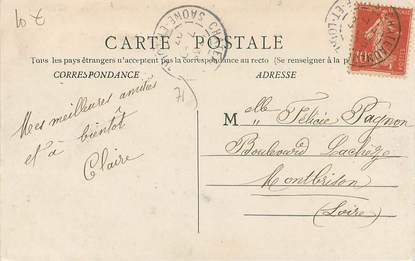 10 €
CARTE POSTALE
Tous les pays étrangers n'acceptent pas la correspondance au recto (Se renseigner à la p
CORRESPONDANCE
ADRESSE
71
Mes meilleures amitiés
et à bientôt
Claire
Melle Félicie Pagnon
Boulevard Lachèze
Montbrison
(Loire)
SAONE-ET-
ET-LOIRE
10